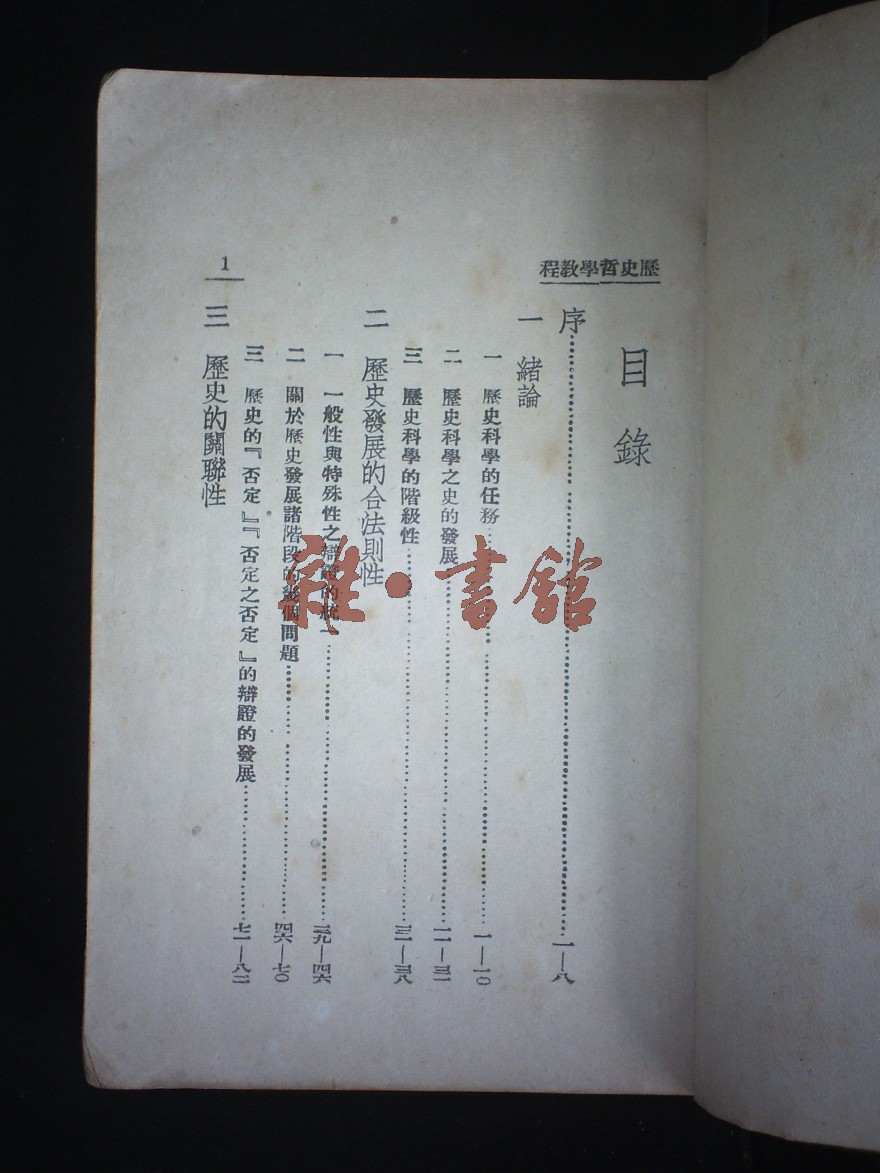 程教學哲史歷
1
目錄
序……一—八
一 緒論
一 歷史科學的任務……一—一〇
二 歷史科學之史的發展……一一—三一
三 歷史科學的階級性……三一—三八
二 歷史發展的合法則性
一 一般性與特殊性之辯證的統一……三九—四六
二 關於歷史發展諸階段的幾個問題……四六—七〇
三 歷史的『否定』『否定之否定』的辯證的發展……七一—八二
三 歷史的關聯性
雜·書館